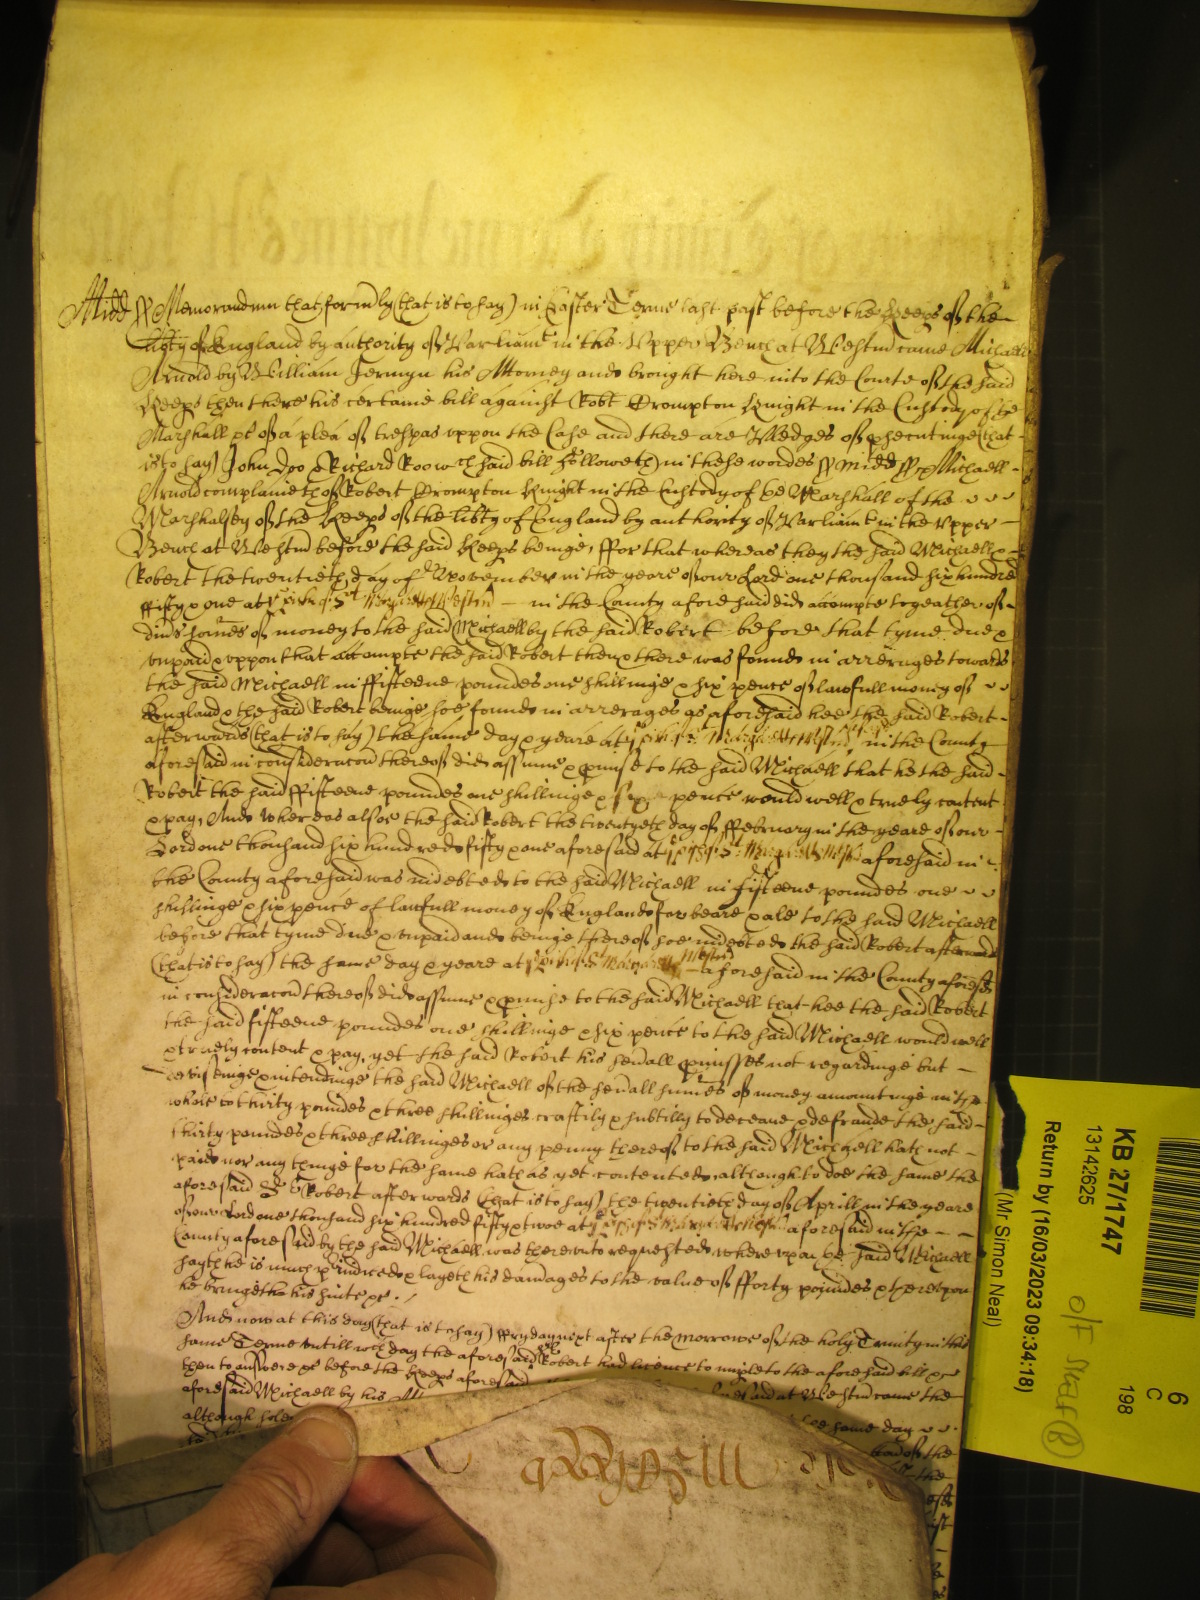 Midd ss Memorandum that formerly (that is to say) in Easter Terme last past before the Keeps of the
Lib'ty of England by authority of Parliamt in the Upper Bench at Westm came Michaell
Arnold by William Jermyn his Attorney and brought here into the Courte of the said
Keeps then there his certaine bill against Robt Crompton Knight in the Custody of ye
Marshall &c of a plea of trespas uppon the Case and there are Pledges of p'secutinge (that
is to say) John Doo & Richard Roo wch said bill followeth in these wordes ss Midd ss Michaell
Arnold complaineth of Robert Crompton Knight in the Custody of ye Marshall of the
Marshalsey of the Keeps of the lib'ty of England by authority of Parliamt in the Upper
Bench at Westm before the said Keeps beinge, ffor that whereas they the said Michaell &
Robert the twentieth day of November in the yeare of our Lord one thousand six hundred
ffifty & one at ye p'ish of St Margarett Westm in the County aforesaid did accompte togeather of
div's somes of money to the said Michaell by the said Robert before that tyme due &
unpaid & uppon that accompte the said Robert then & there was found in arrerages towards
the said Michaell in ffifteene poundes one shillinge & six pence of lawfull money of
England & the said Robert beinge soe found in arrerages as aforesaid hee the said Robert
afterwards (that is to say) the same day & yeare at ye p'ish of St Margarett Westm in the County
aforesaid in consideracon thereof did assume & p'mise to the said Michaell that he the said
Robert the said ffifteene poundes one shillinge & six pence would well & truely content
& pay, And whereas alsoe the said Robert the twentyeth day of ffebruary in the yeare of our
Lord one thousand six hundred fifty & one aforesaid at ye p'ish of St Margarett Westm aforesaid in
the County aforesaid was indebted to the said Michaell in fifteene poundes one
shillinge & six pence of lawfull money of England for beare & ale to the said Michaell
before that tyme due & unpaid and beinge thereof soe indebted the said Robert afterwards
(that is to say) the same day & yeare at ye p'ish of St Margarett Westm aforesaid in the County aforesd
in consideracon thereof did assume & p'mise to the said Michaell that hee the said Robert
the said fifteene poundes one shillinge & six pence to the said Michaell would well
& truely content & pay, yet the said Robert his sev'all p'misses not regardinge but
devisinge & intendinge the said Michaell of the sev'all sumes of money amountinge in the
whole to thirty poundes & three shillinges craftily & subtilly to deceave & defraude the said
thirty poundes & three shillinges or any penny thereof to the said Michaell hath not
paid nor any thinge for the same hath as yet contented, although to doe the same the
aforesaid Robert afterwards (that is to say) the twentieth day of Aprill in the yeare
of our Lord one thousand six hundred fifty & twoe at ye p'ish of St Margarett Westm aforesaid in the
County aforesaid by the said Michaell was thereunto requested, whereupon ye said Michaell
sayth he is much p'iudiced & layeth his damages to the value of fforty poundes & thereupon
he bringeth his suite &c.
And now at this day (that is to say) ffryday next after the morrowe of the holy Trinity in this
same Terme untill wch day the aforesaid Robert had licence to imple to the aforesaid bill &c
then to answere &c before the Keeps aforesaid at Westm came the
aforesaid Michaell by his
although sole
the same day
of the
the
KB 27/1747
13142625
Return by (16/03/2023 09:34:18)
(Mr Simon Neal)
6
C
198